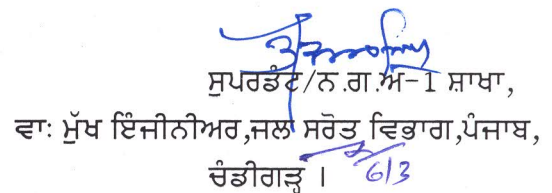 ਸੁਪਰਡੰਟ/ਨ.ਗ.ਅ-1 ਸ਼ਾਖਾ,
ਵਾ: ਮੁੱਖ ਇੰਜੀਨੀਅਰ,ਜਲ ਸਰੋਤ ਵਿਭਾਗ,ਪੰਜਾਬ,
ਚੰਡੀਗੜ੍ਹ ।
6/3